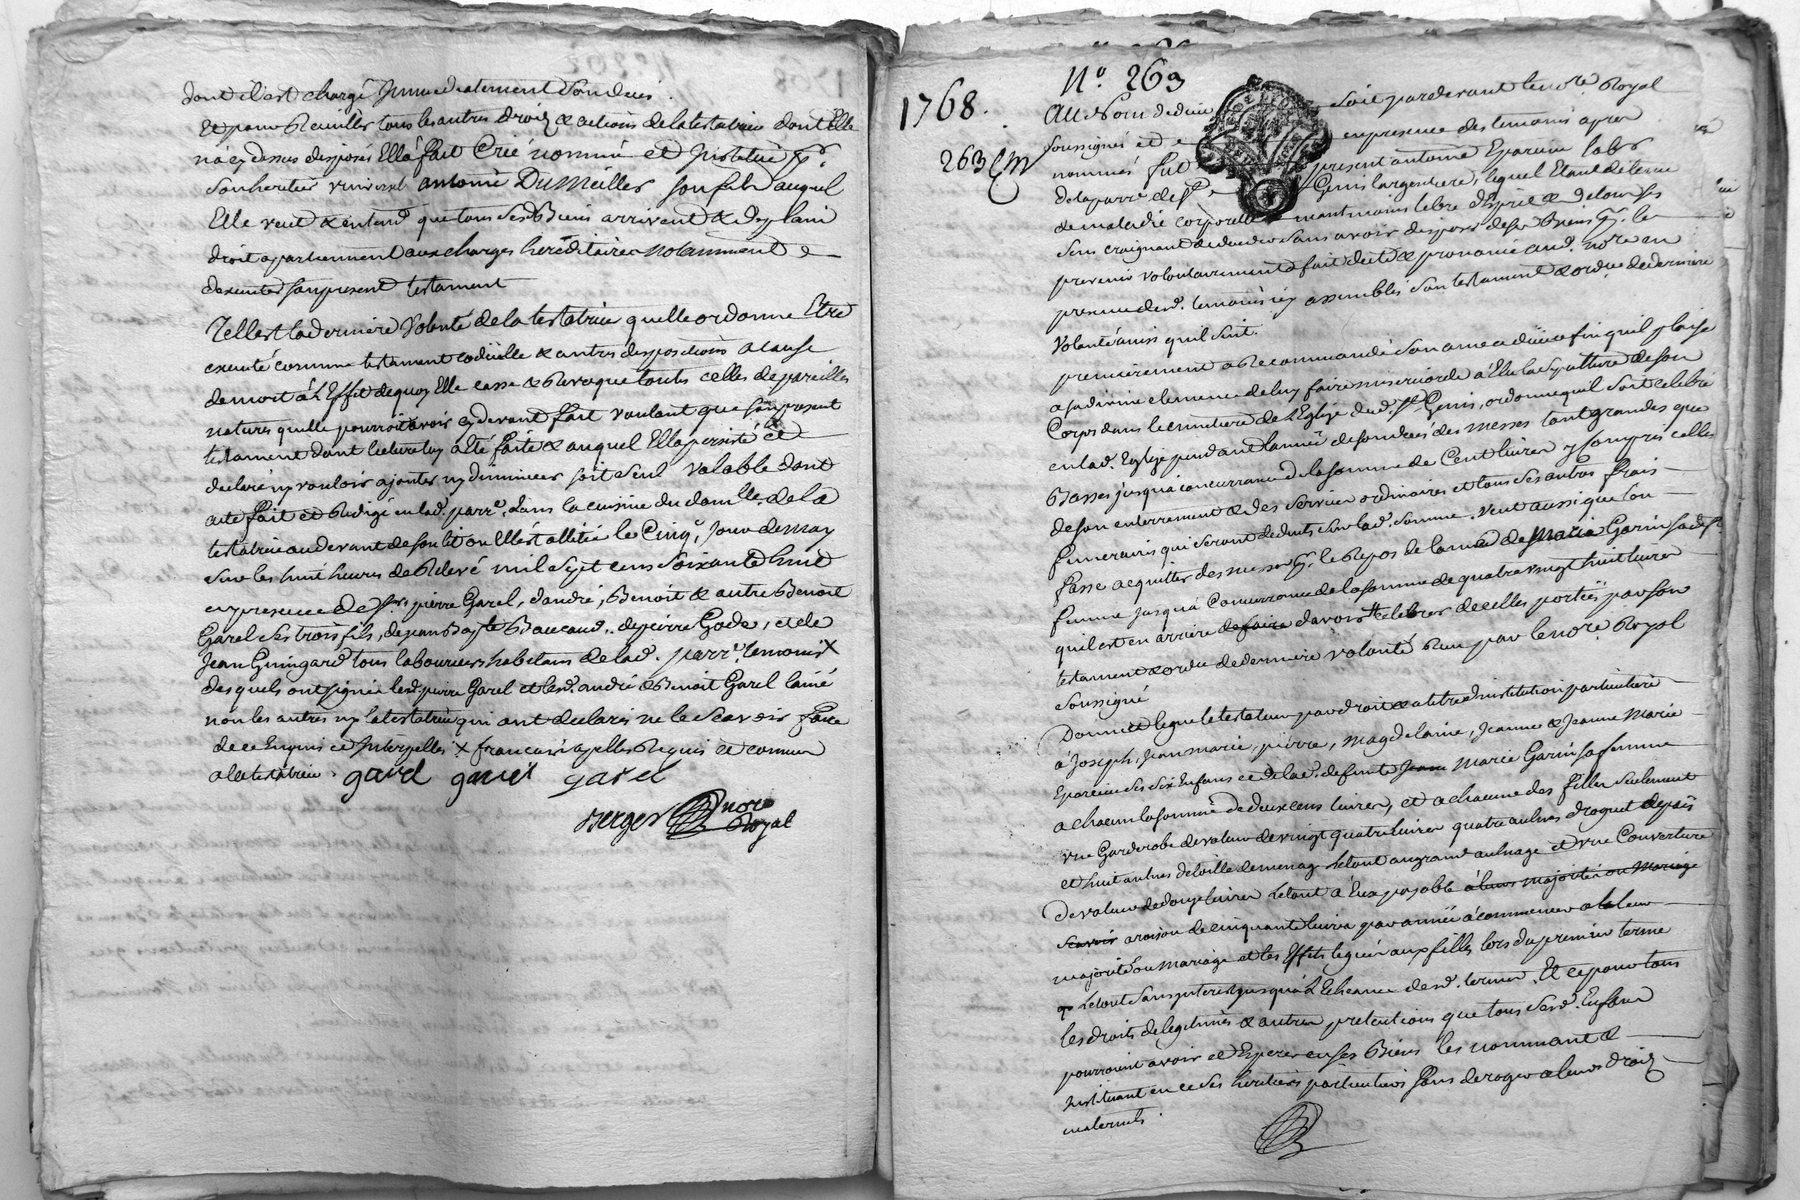 dont il est chargé Immediatement son deces.
Et pour Recueillir tous les autres droits & actions de la testatrice dont Elle
n'a cy dessus disposés Ella fait Créé nommé et Institué pr.
son heritier universel antoine Dumeiller son fils auquel
Elle veut & entend que tous ses Biens arrivent & de plain
droit apartiennent aux charges hereditaires notamment
dexecuter son present testament
Telle est la derniere Volonté de la testatrice quelle ordonne Etre
executé comme testament codicille & autres dispositions a cause
de mort à L'Effet de quoy Elle casse & Revoque toutes celles de pareilles
natures quelle pourroit avoir cy devant fait voulant que son present
testament dont lecture luy a été faite & auquel Ella persisté et
declaré ny vouloir ajouter ny diminuer soit seul valable dont
acte fait et Redigé en lad. parre. dans la cuisine du domlle. de la
testatrice au devant de son lit ou Elle est allitée le Cinqe. Jour de may
sur les huit heures de Relevé mil sept cens soixante huit
en presence de Srs pierre Garel, d'andré, Benoit & autre Benoit
Garel ses trois fils, de jean Bapte. Baucaud, de pierre Gode, et de
Jean Guingard tous laboureurs habitans de lad. parre. temoins x
des quels ont signé led. pierre Garel et lesd. andré & Benoit Garel lainé
non les autres ny la testatrice qui ont declaré ne le Scavoir faire
de ce Enquis et Interpellés x francais appellés Requis et connus
a la testatrice. garel garel garel
Berger nore
Royal
1768.
263
No. 263
Au Nom de dieu soit pardevant le nore. Royal
soussigné et en presence des temoins apres
nommés fut present antoine Eparvier labr
de la parre. de St Genis largentiere, lequel Etant detenu
de maladie corporelle neantmoins libre d'Esprit & de tous ses
sens craignant de deceder sans avoir disposé de ses Biens pr. le
prevenir volontairement a fait dicté & prononcé aud. nore en
presence desd. temoins icy assemblés son testament & ordre de derniere
Volonté ainsi quil suit.
premierement a Recommandé son ame a dieu afin quil plaise
a sa divine clemence de luy faire misericorde à Elu la sepulture de son
Corps dans le cimetiere de L'Eglise dud. St Genis, ordonne quil soit celebré
en lad. Eglise pendant l'année de son decés des messes tant grandes que
Basses jusqua concurrance de la somme de Cent livres y compris celles
de son enterrement & des services ordinaires et tous ses autres frais
funeraires qui seront deduits sur lad. somme. veut aussi que l'on
fasse acquitter des messes pr. le Repos de lame de Marie Garin sa defte.
femme jusqu'a Concurrance de la somme de quatre vingt huit livres
quil est en arriere de faire davoir ft celebrer de celles portées par son
testament & ordre de derniere volonté Reçu par le nore. Royal
soussigné
Donne et legue le testateur par droit & a titre d'institution particuliere
à Joseph, Jean marie, pierre, magdelaine, Jeanne & Jeanne Marie
Eparvier ses six Enfans et de lad. defunte Jean Marie Garin sa femme
a chacun la somme de deux cens livres, et a chacune des filles seulement
une Garderobe de valeur de vingt quatre livres quatre aulnes droguet depays
et huit aulnes de toille de menage le tout au grand aulnage et une Couverture
de valeur de douze livres le tout à Eux payable à leurs majorité ou Mariage
scavoir a raison de cinquante livres par année à commencer a la leur
majorité ou mariage et les Effets legués aux filles lors du premier terme
le tout sans interest jusqu'à L'Echeance desd. termes. Et ce pour tous
les droits de legitimes & autres pretentions que tous sesd. Enfans
pourroient avoir et Esperer en ses Biens les nommant &
instituant en ce ses heritiers particuliers sans deroger a leurs droits
maternels.